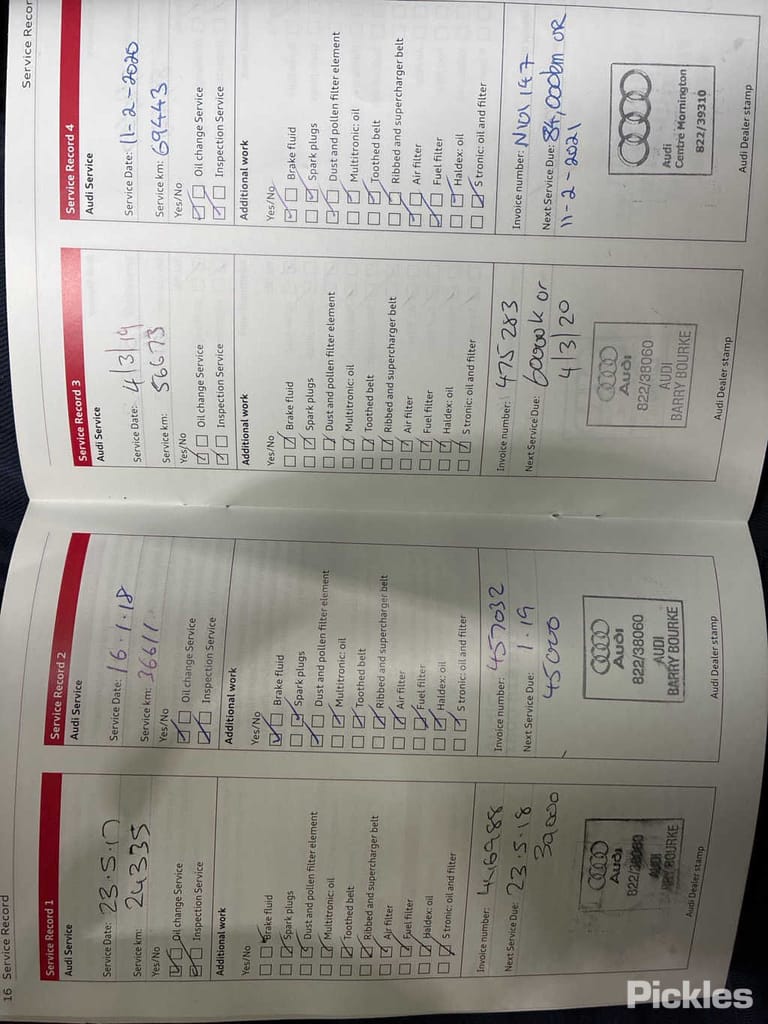 16 Service Record
Service Record 1
Audi Service
Service Date: 23.5.17
Service km: 24335
Yes/No
Oil change Service
Inspection Service
Additional work
Yes/No
Brake fluid
Spark plugs
Dust and pollen filter element
Multitronic: oil
Toothed belt
Ribbed and supercharger belt
Air filter
Fuel filter
Haldex: oil
S tronic: oil and filter
Invoice number: 446988
Next Service Due: 23.5.18
39000
Audi
822/38060
AUDI
BARRY BOURKE
Audi Dealer stamp
Service Record 2
Audi Service
Service Date: 16.1.18
Service km: 36611
Yes/No
Oil change Service
Inspection Service
Additional work
Yes/No
Brake fluid
Spark plugs
Dust and pollen filter element
Multitronic: oil
Toothed belt
Ribbed and supercharger belt
Air filter
Fuel filter
Haldex: oil
S tronic: oil and filter
Invoice number: 457032
Next Service Due: 1.19
45000
Audi
822/38060
AUDI
BARRY BOURKE
Audi Dealer stamp
Service Record 3
Audi Service
Service Date: 4/3/19
Service km: 56673
Yes/No
Oil change Service
Inspection Service
Additional work
Yes/No
Brake fluid
Spark plugs
Dust and pollen filter element
Multitronic: oil
Toothed belt
Ribbed and supercharger belt
Air filter
Fuel filter
Haldex: oil
S tronic: oil and filter
Invoice number: 475283
Next Service Due: 60000 K or
4/3/20
Audi
822/38060
AUDI
BARRY BOURKE
Audi Dealer stamp
Service Recor
Service Record 4
Audi Service
Service Date: 11-2-2020
Service km: 69443
Yes/No
Oil change Service
Inspection Service
Additional work
Yes/No
Brake fluid
Spark plugs
Dust and pollen filter element
Multitronic: oil
Toothed belt
Ribbed and supercharger belt
Air filter
Fuel filter
Haldex: oil
S tronic: oil and filter
Invoice number: N101147
Next Service Due: 84,000km OR
11-2-2021
Audi
Centre Mornington
822/39310
Audi Dealer stamp
Pickles